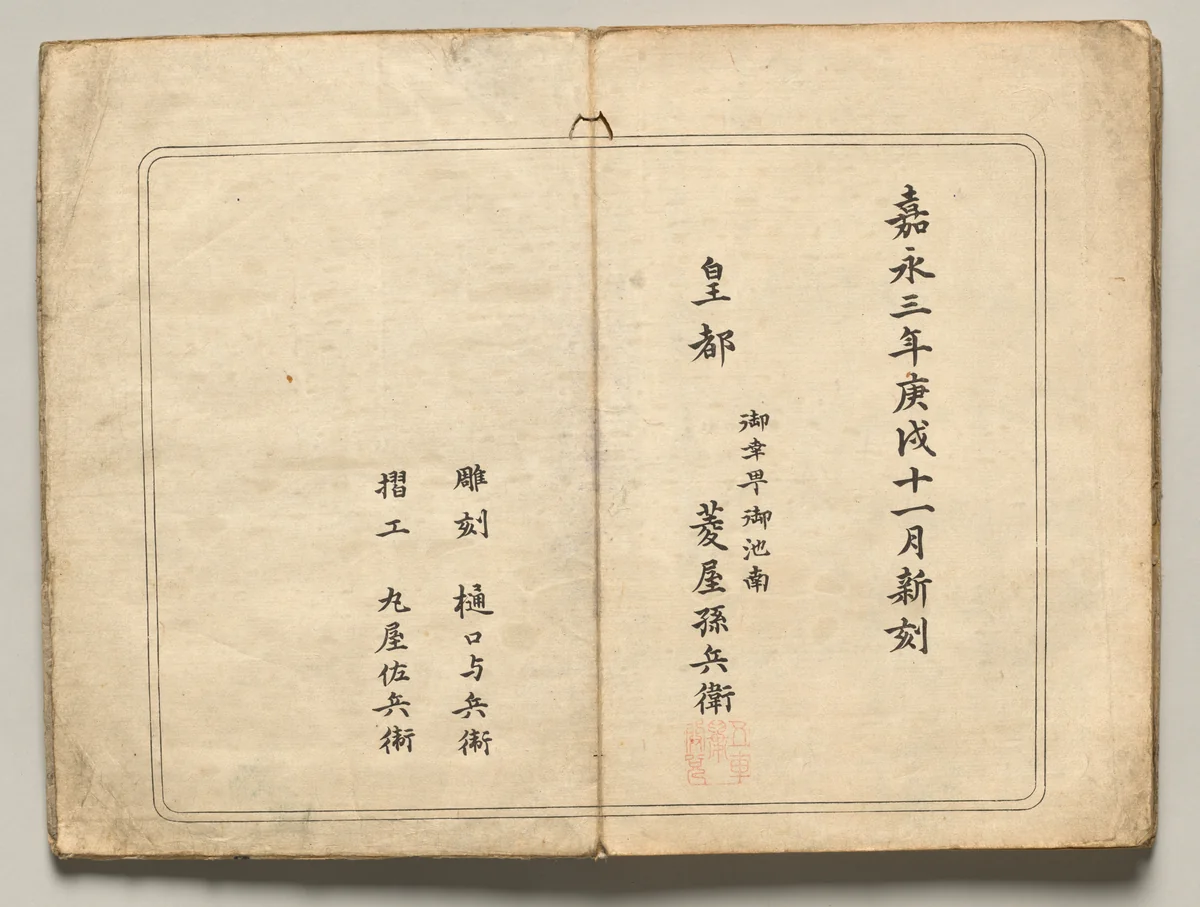 嘉永三年庚戌十一月新刻
御幸町御池南
皇都 菱屋孫兵衛
雕刻 樋口与兵衛
摺工 丸屋佐兵衛